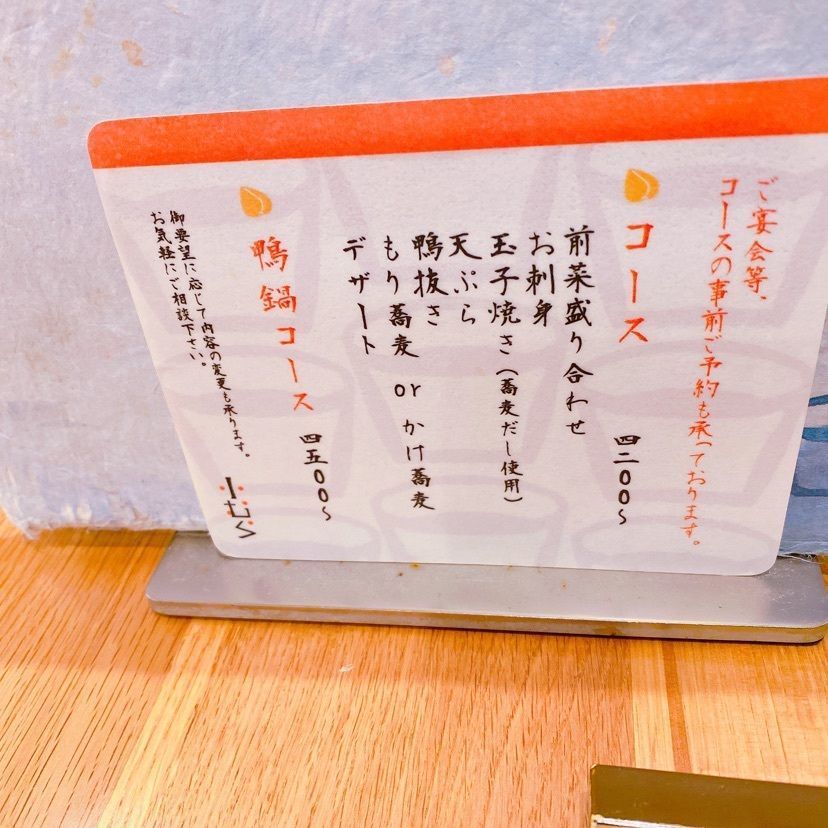 ご宴会等、
コースの事前ご予約も承っております。
コース 四二〇〇～
前菜盛り合わせ
お刺身
玉子焼き（蕎麦だし使用）
天ぷら
鴨抜き
もり蕎麦 or かけ蕎麦
デザート
鴨鍋コース 四五〇〇～
御要望に応じて内容の変更も承ります。
お気軽にご相談下さい。
小むら